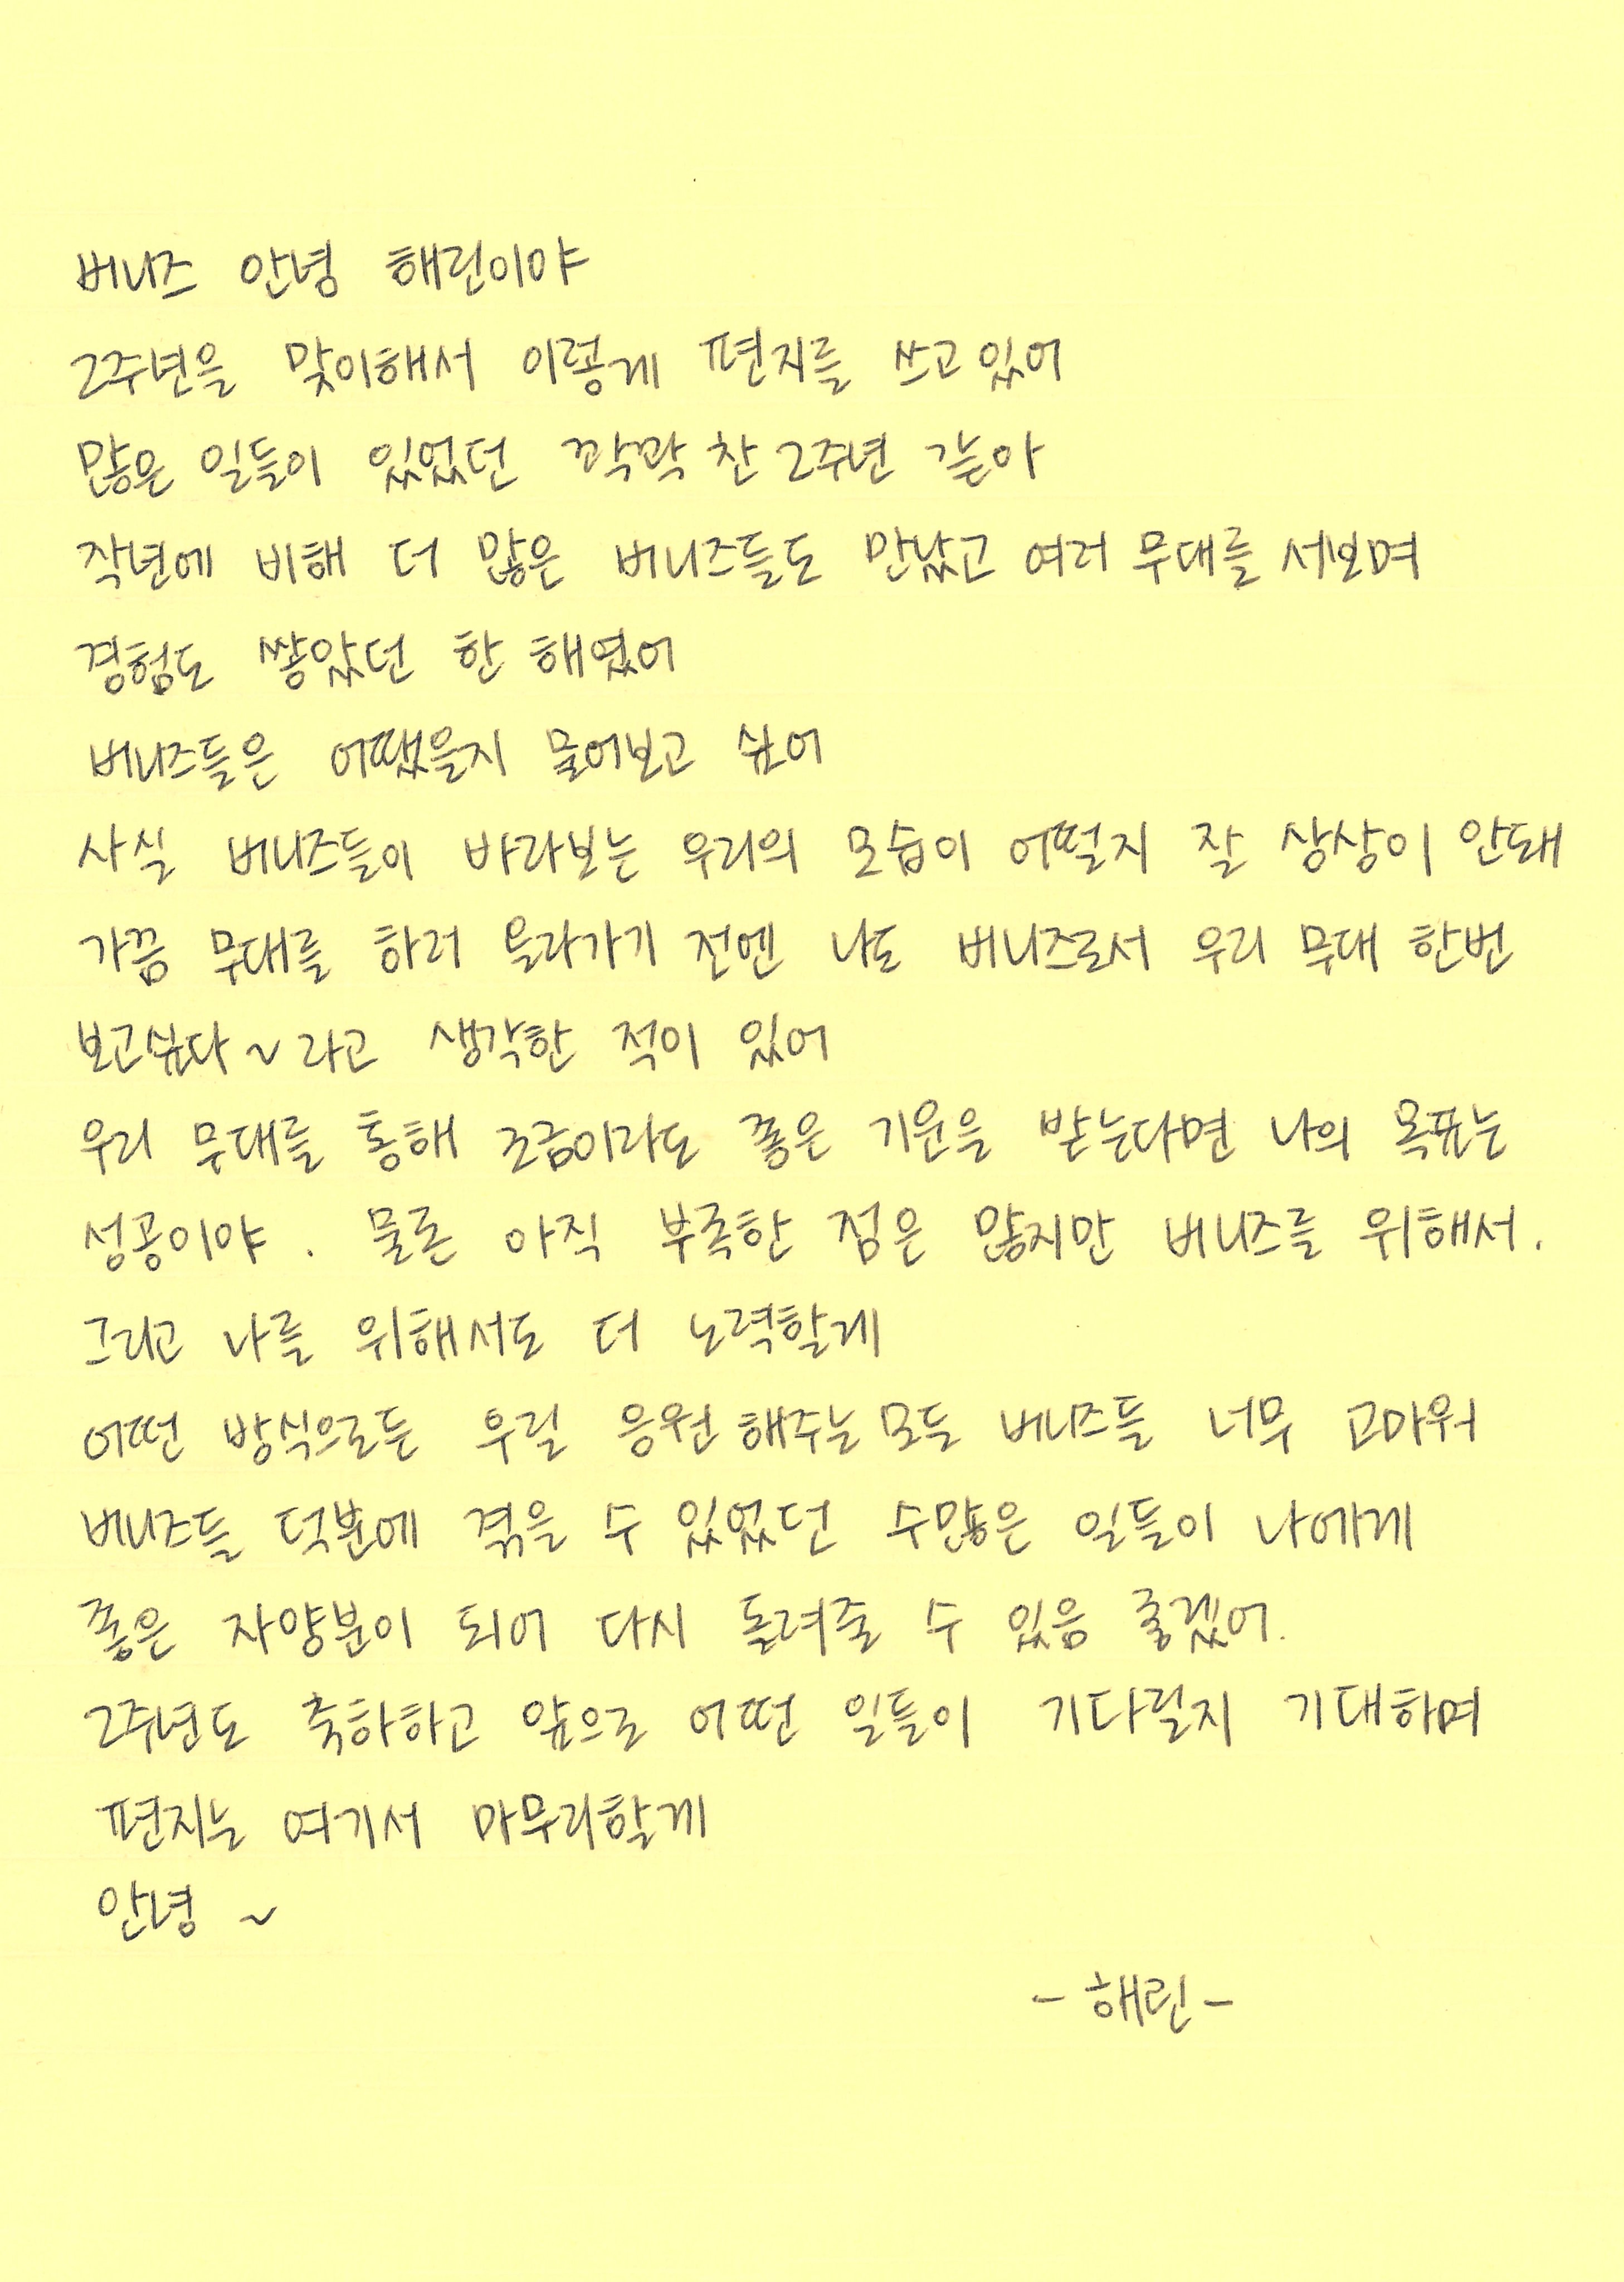 버니즈 안녕 해린이야
2주년을 맞이해서 이렇게 편지를 쓰고있어
많은 일들이 있었던 꽉꽉 찬 2주년 같아
작년에 비해 더 많은 버니즈들도 만났고 여러 무대를 서보며
경험도 쌓았던 한 해였어
버니즈들은 어땠을지 물어보고 싶어
사실 버니즈들이 바라보는 우리의 모습이 어떨지 잘 상상이 안돼
가끔 무대를 하러 올라가기 전엔 나도 버니즈로서 우리 무대 한번
보고싶다~라고 생각한 적이 있어
우리 무대를 통해 조금이라도 좋은 기운을 받는다면 나의 목표는
성공이야. 물론 아직 부족한 점은 많지만 버니즈를 위해서.
그리고 나를 위해서도 더 노력할게
어떤 방식으로든 우릴 응원해주는 모든 버니즈들 너무 고마워
버니즈들 덕분에 겪을 수 있었던 수많은 일들이 나에게
좋은 자양분이 되어 다시 돌려줄 수 있음 좋겠어.
2주년도 축하하고 앞으로 어떤 일들이 기다릴지 기대하며
편지는 여기서 마무리할게
안녕~
-해린-